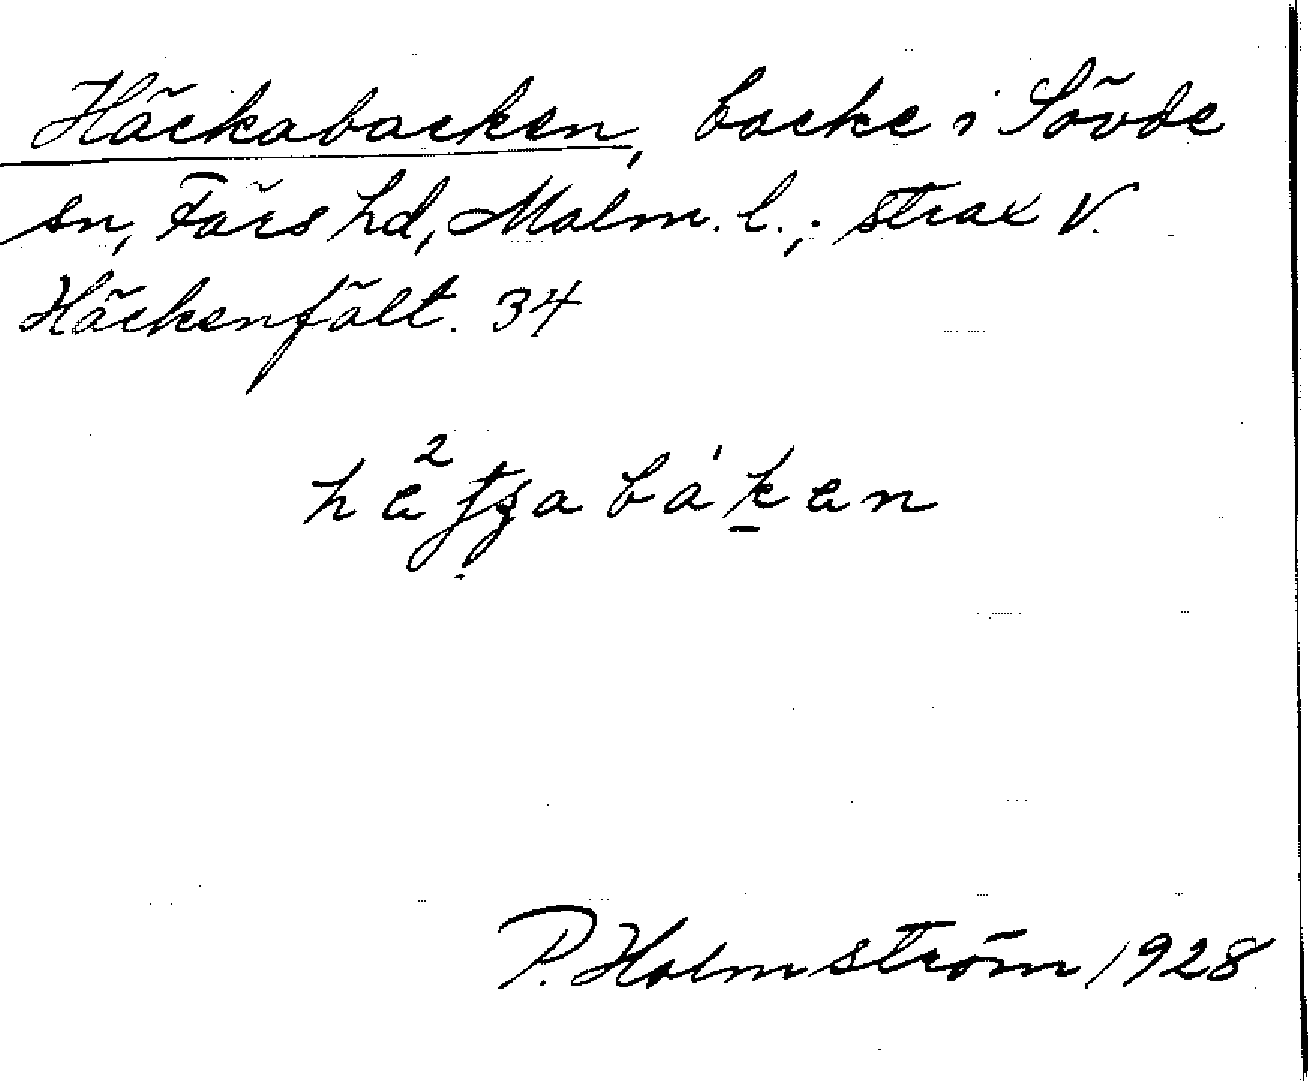 Häckabacken, backe i Sövde
sn, Färs hd, Malm. l.; strax V.
Häckenfält. 34
P. Holmström 1928